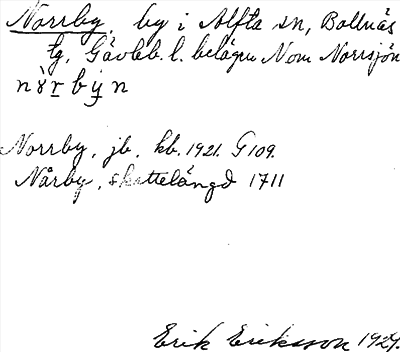 Norrby, by i Alfta sn, Bollnäs
tg, Gävleb. l. belägen Nom Norrsjön
Norrby, jb, kb. 1921. G109.
Nårby, skattelängd 1711
Erik Eriksson 1927.